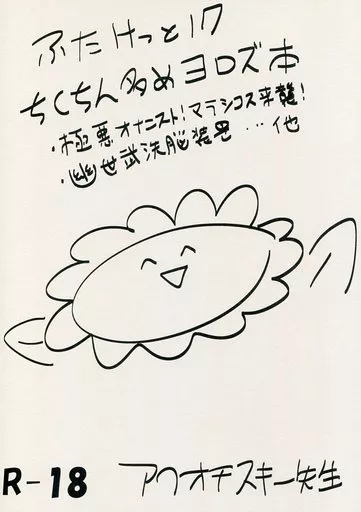 ふたけっと17
ちくちん多めヨロズ本
・極悪オナニスト!マラシコス来襲!
・幽世武洗脳装置…他
R-18
アワオチスキー先生